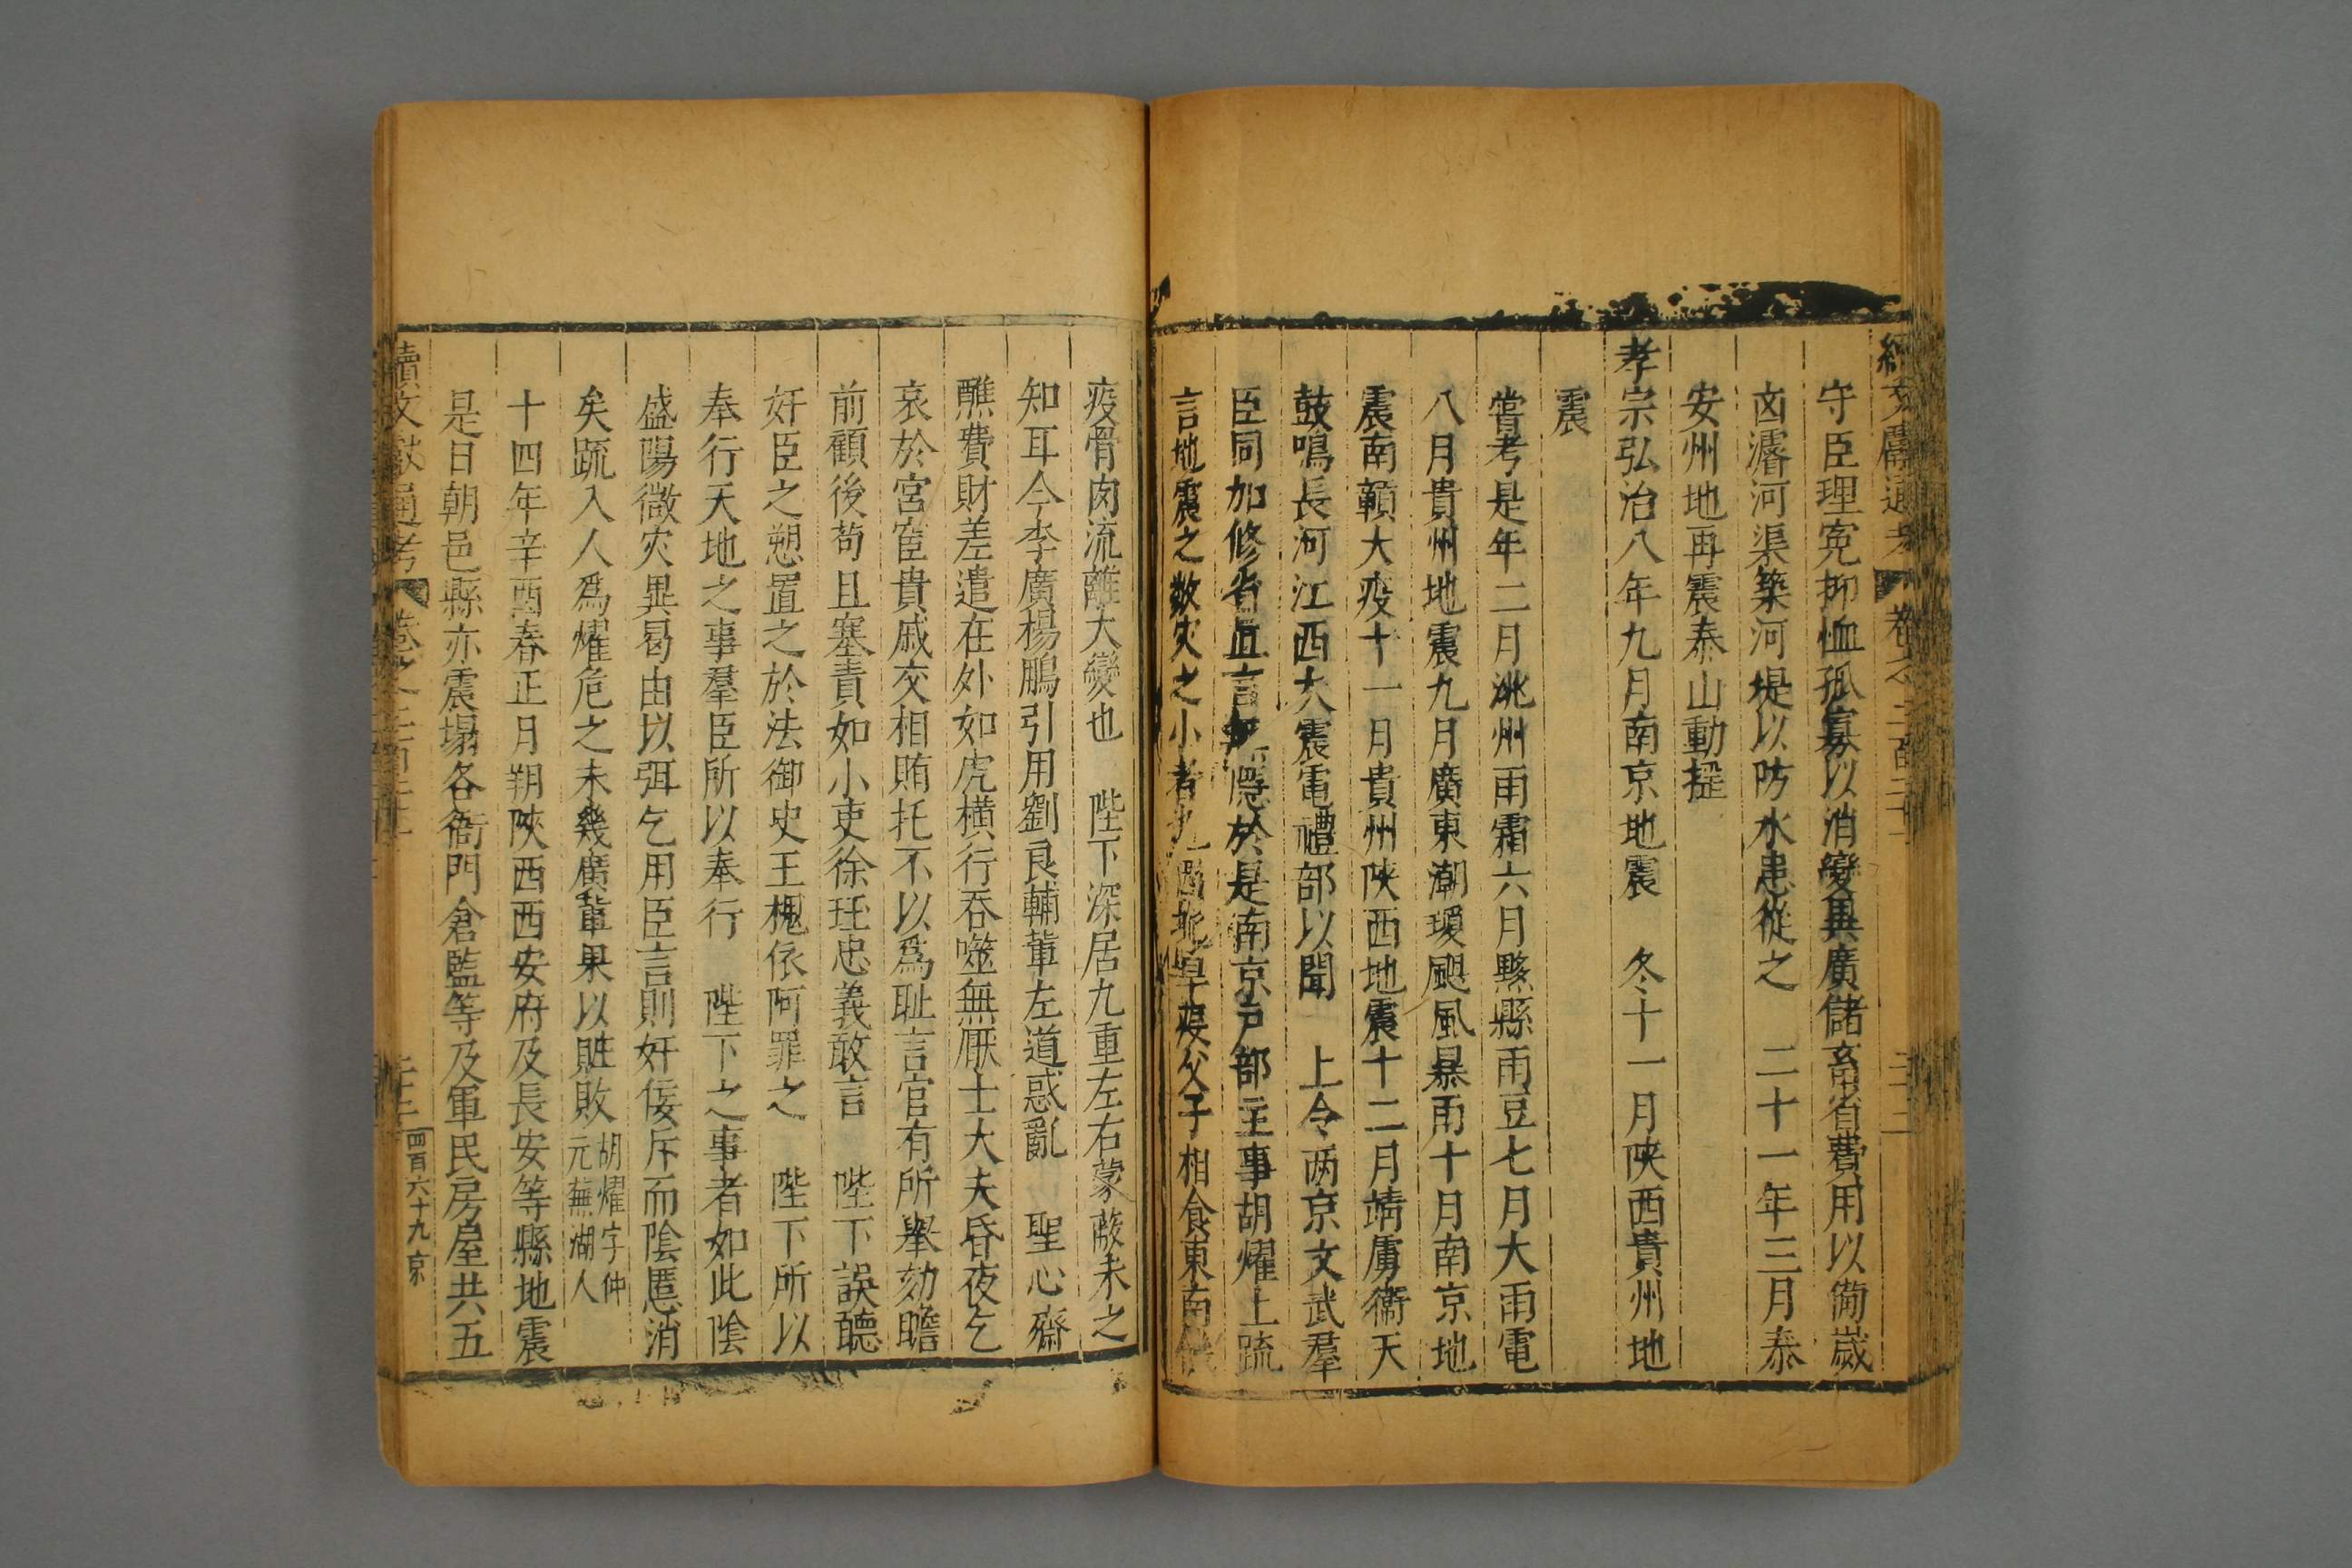 續文獻通考 卷之二百二十一
守臣理寃抑恤孤寡以消變異廣儲畜省費用以備歲
凶濬河渠築河堤以防水患從之 二十一年三月泰
安州地再震泰山動揺
孝宗弘治八年九月南京地震 冬十一月陝西貴州地
震
嘗考是年二月洮州雨霜六月黟縣雨豆七月大雨電
八月貴州地震九月廣東潮瓊颶風暴雨十月南京地
震南贛大疫十一月貴州陝西地震十二月靖虜衞天
鼓鳴長河江西大震電禮部以聞 上令两京文武羣
臣同加修省直言無隱於是南京戸部主事胡燿上疏
言地震之數灾之小者也 旱疫父子相食東南
疫骨肉流離大變也 陛下深居九重左右蒙蔽未之
知耳今李廣楊鵬引用劉良輔軰左道惑亂 聖心齋
醮費財差遣在外如虎横行吞噬無厭士大夫昏夜乞
哀於宮宦貴戚交相賄托不以爲耻言官有所舉劾瞻
前顧後苟且塞責如小吏徐珪忠義敢言 陛下誤聽
奸臣之愬置之於法御史王槐依阿罪之 陛下所以
奉行天地之事羣臣所以奉行 陛下之事者如此陰
盛陽微灾異曷由以弭乞用臣言則奸佞斥而陰慝消
矣疏入人爲燿危之未幾廣軰果以賍敗 胡燿字仲元蕪湖人
十四年辛酉春正月朔陝西西安府及長安等縣地震
是日朝邑縣亦震塌各衙門倉監等及軍民房屋共五
續文獻通考 卷之二百二十一 四百六十九 京